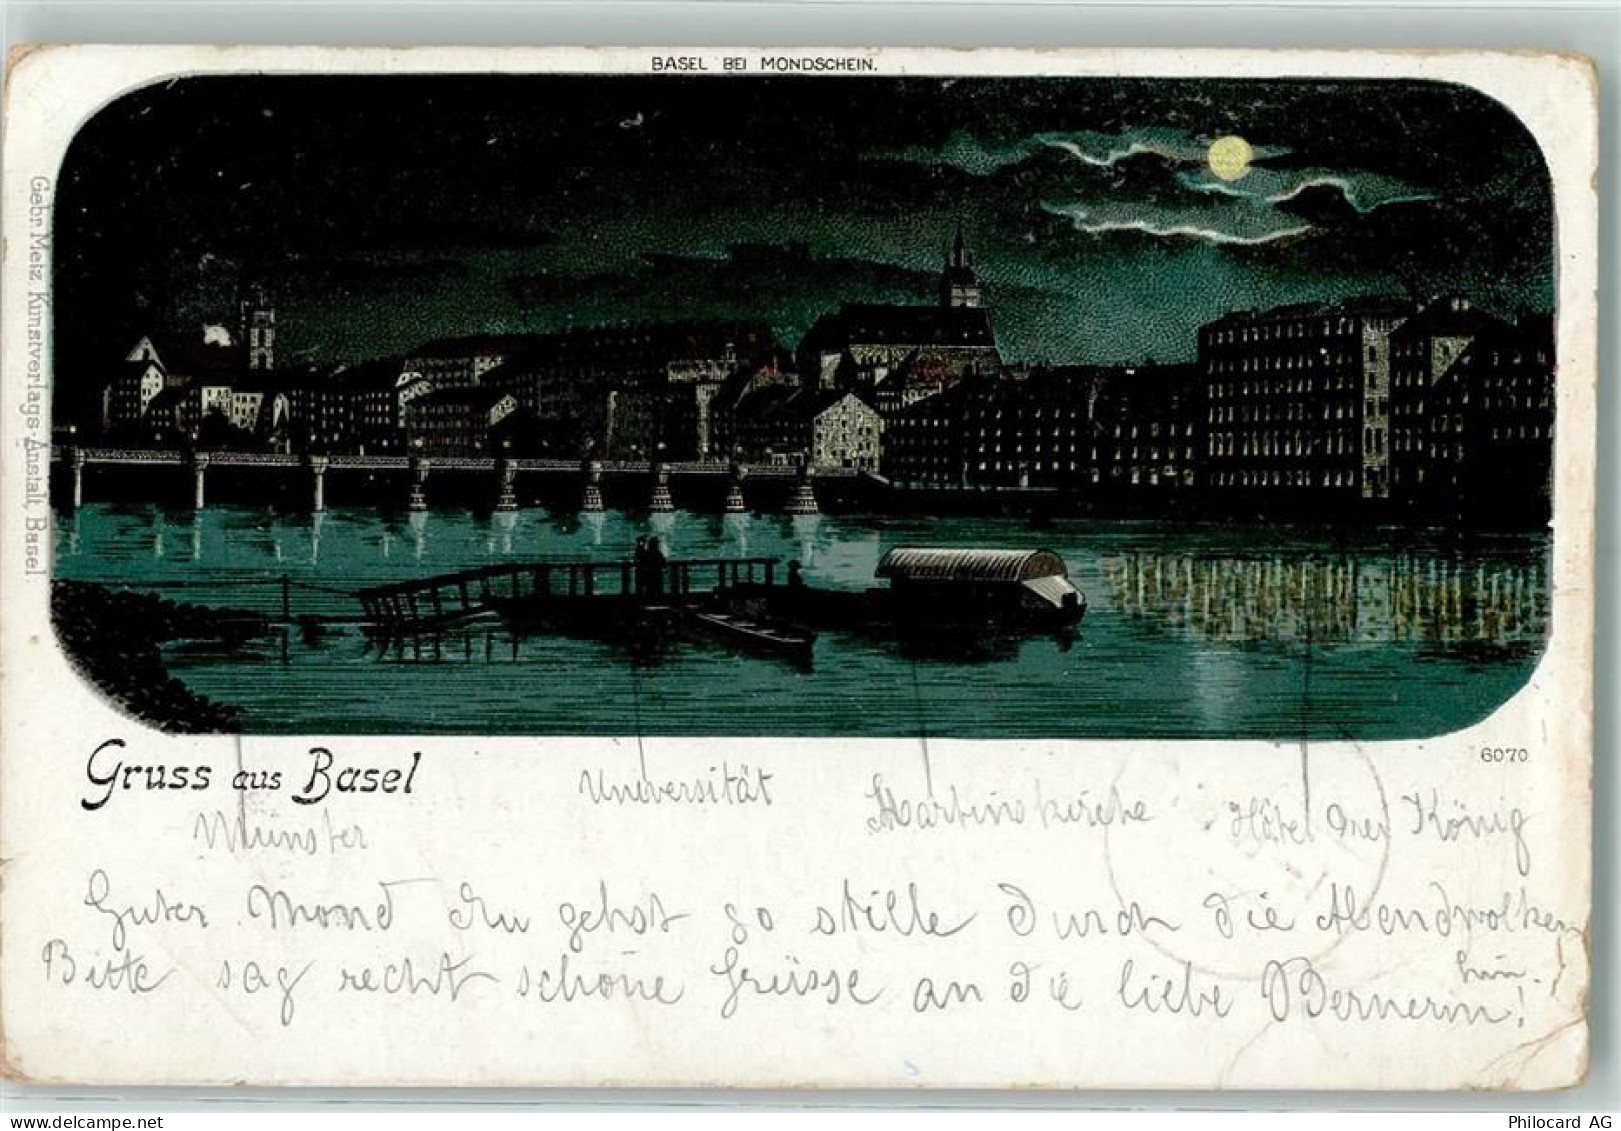 BASEL BEI MONDSCHEIN.
Gebr. Metz Kunstverlags-Anstalt, Basel
6070
Gruss aus Basel
Münster
Universität
Martinskirche
Hôtel Drei König
Guter Mond du gehst so stille durch die Abendwolken
hin.
Bitte sag recht schöne Grüsse an die liebe Bernerin!
Philocard AG